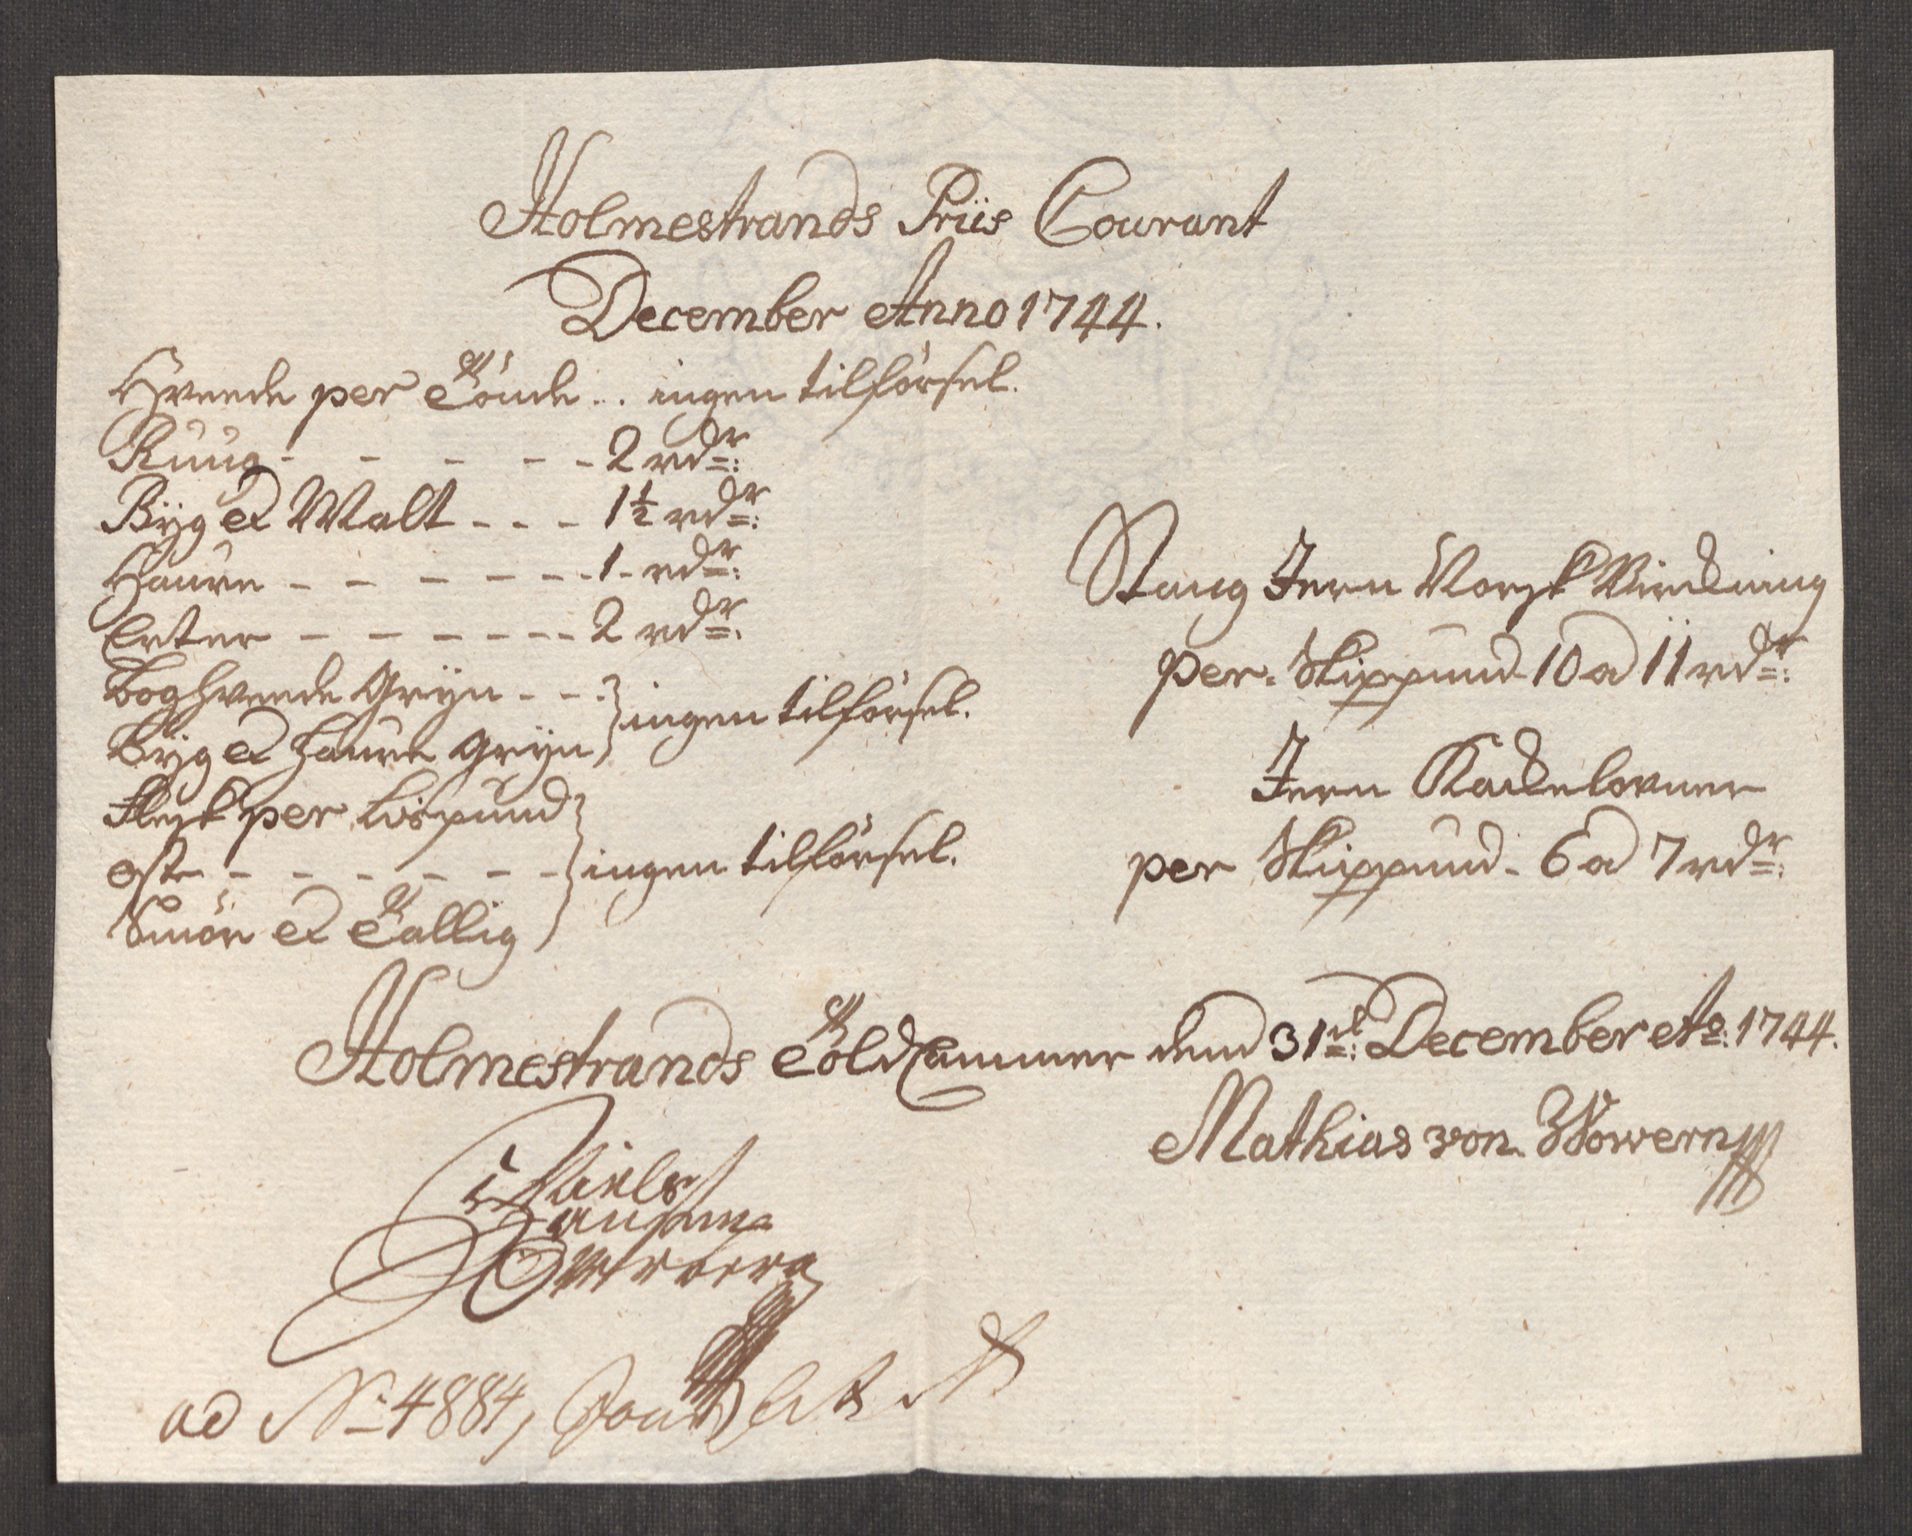 Holmestrands Priis Courant
December Anno 1744.
Hveede per Tönde .. ingen tilförsel.
Ruug - - - - - - 2 rdr:
Byg & Malt - - - 1½ rdr:
Haure - - - - - - 1 - rdr:
Erter - - - - - - 2 rdr.
Boghveede Gryn - - -
Byg & Haure Gryn } ingen tilförsel.
Flesk per Lispund
Ost - - - - - - } ingen tilförsel.
Smör & Tallig
Stang Jern Norsk Virckning
per. Skippund 10 a 11 rdr:
Jern Kackelovner
per Skippund - 6 a 7 rdr:
Holmestrands Told Cammer dend 31te: December Ao: 1744.
Mathias von Wowern
Niels
Hansen
ad No 4884,